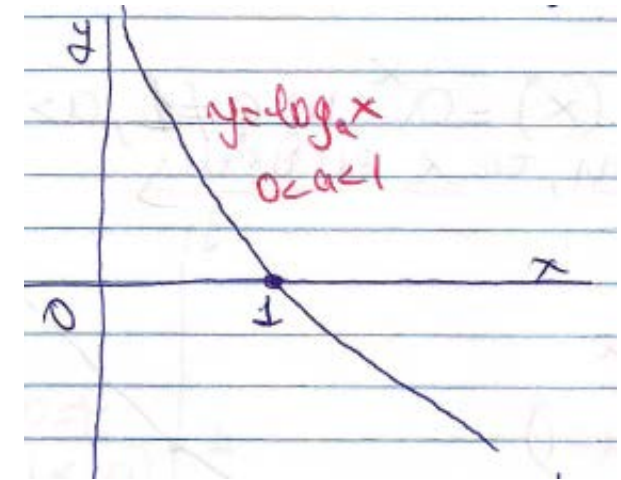 y
y=log_a x
0<a<1
x
0
1